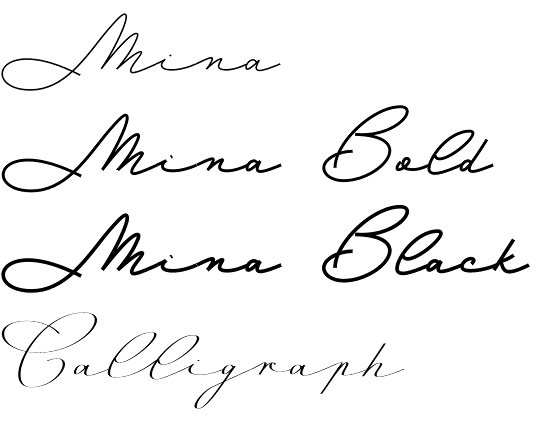 Mina
Mina Bold
Mina Black
Calligraph